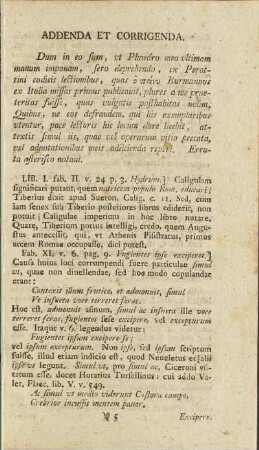 ADDENDA ET CORRIGENDA.
Dum in eo sum, ut Phaedro meo ultimam
manum imponam, sero deprehendo, ex Perottini
codicis lectionibus, quas ὁ πάνυ Burmannus
ex Italia missas primus publicauit, plures a me praeteritas
fuisse, quas vulgatis posthabitas nolim,
Quibus, ne eos defraudem, qui his exemplaribus
utentur, pace lectoris hic locum dare licebit, attextis
simul iis, quae vel operarum vitio peccata,
vel adnotationibus meis adiicienda reperi. Errata
asterisco notaui.
LIB. I. fab. II. v. 24 p. 3. Hydrum.] Caligulam
significari putant, quem natricem populo Rom. educari
Tiberius dixit apud Sueton. Calig. c. 11. Sed, cum
iam senex sub Tiberio posteriores libros ediderit, non
potuit Caligulae imperium in hoc libro notare.
Quare, Tiberium potius intelligi, credo, quem Augustus
antecessit, qui, vt Athenis Pisistratus, primus
arcem Romae occupasse, dici potest.
Fab. XI. v. 6. pag. 9. Fugientes ipse exciperet.]
Causa huius loci corrumpendi fuere particulae simul
ac, quas non diuellendae, sed hoc modo copulandae
erant:
Contexit illum frutice, et admonuit, simul
Ve insueta voce terreret feras.
Hoc est, admonuit asinum, simul ac insueta ille voce
terreret feras, fugientes sese excipere, vel excepturum
esse. Itaque v. 6. legendus videtur:
Fugientes ipsum excipere se;
vel ipsum excepturum. Non ipso, sed ipsum scriptum
fuisse, illud etiam indicio est, quod Neueletus et alii
ipse vs legunt. Simul vt, pro simul ac, Ciceroni vsitatum
esse, docet Horatius Tursellinus: cui addo Valer.
Flacc. lib. V. v. 549.
Ac simul vt medio viderunt Castora campo,
Crebrior incussit mentem pauor.
5
Excipere.